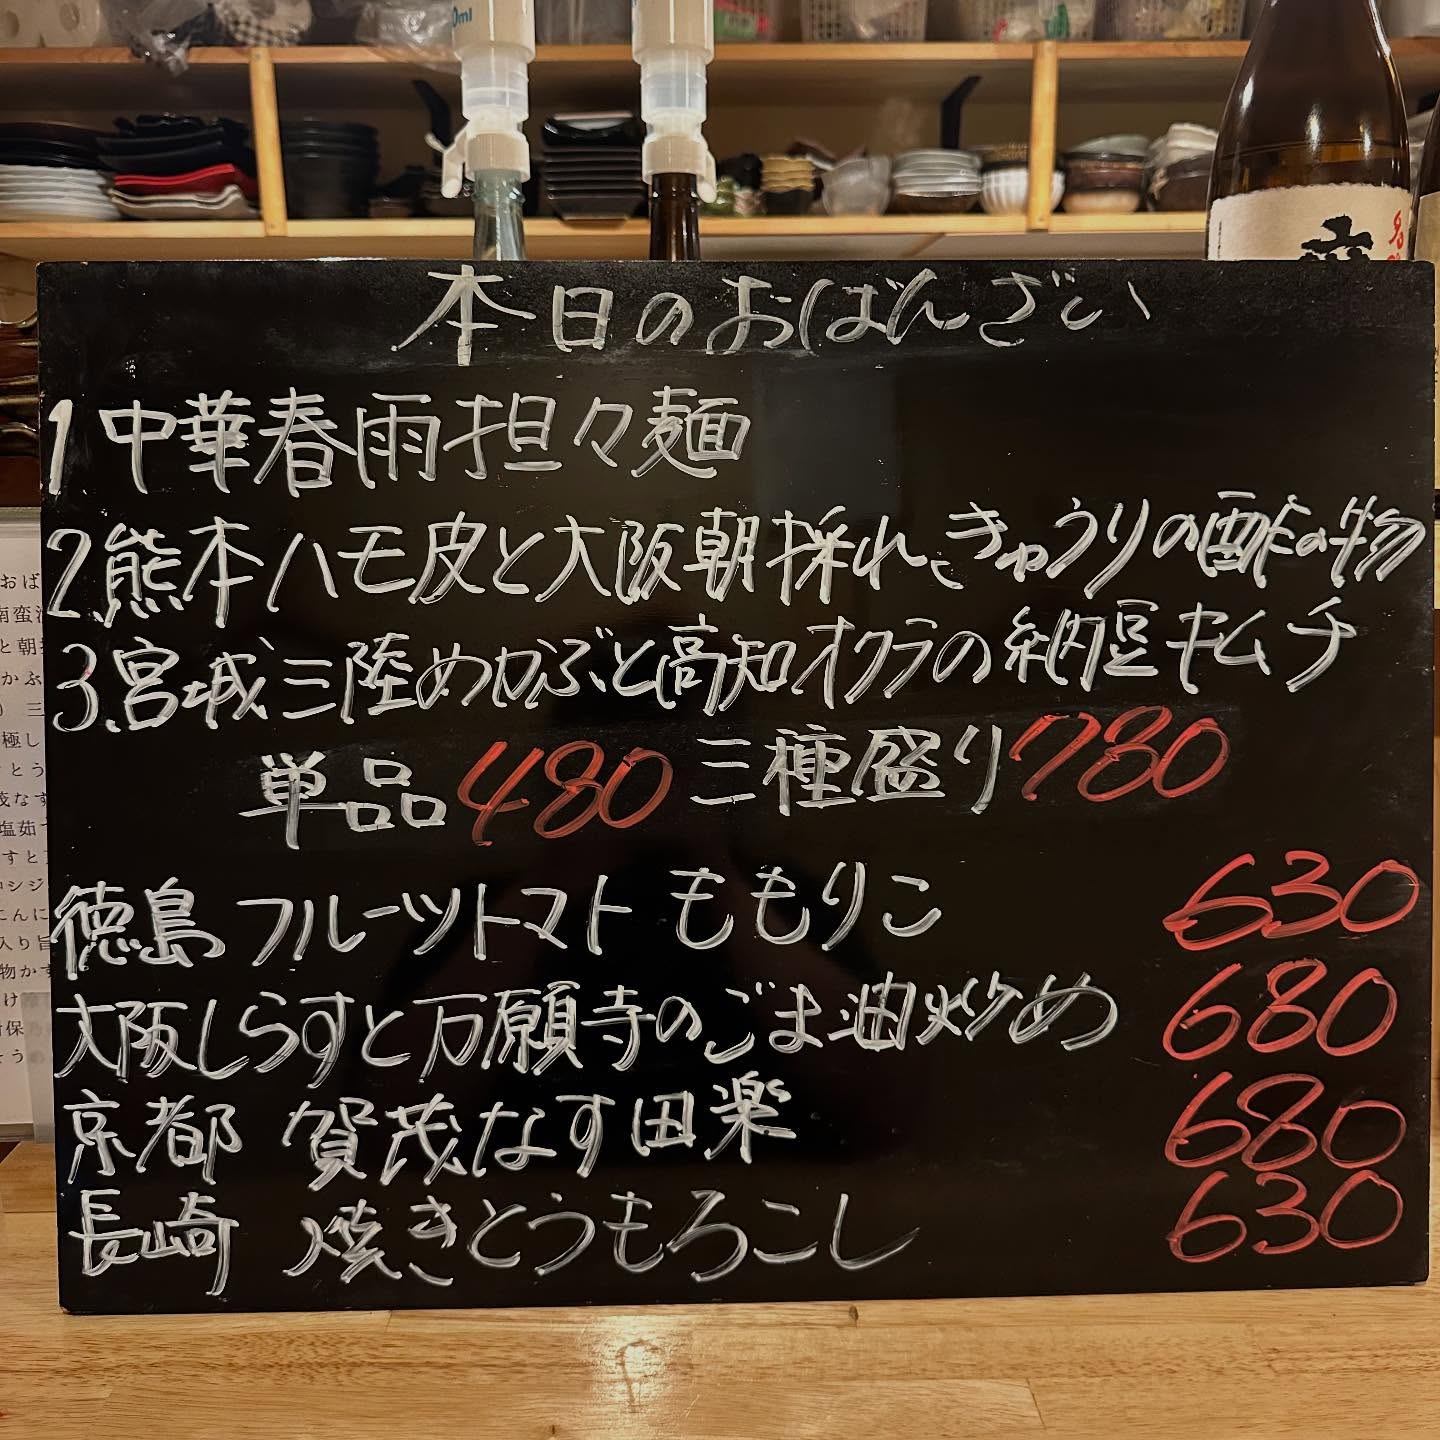 本日のおばんざい
1 中華春雨担々麺
2.熊本ハモ皮と大阪朝採れきゅうりの酢の物
3.宮城三陸めかぶと高知オクラの納豆キムチ
単品480 三種盛り780
徳島 フルーツトマト ももりこ 630
大阪しらすと万願寺のごま油炒め 680
京都 賀茂なす田楽 680
長崎 焼きとうもろこし 630